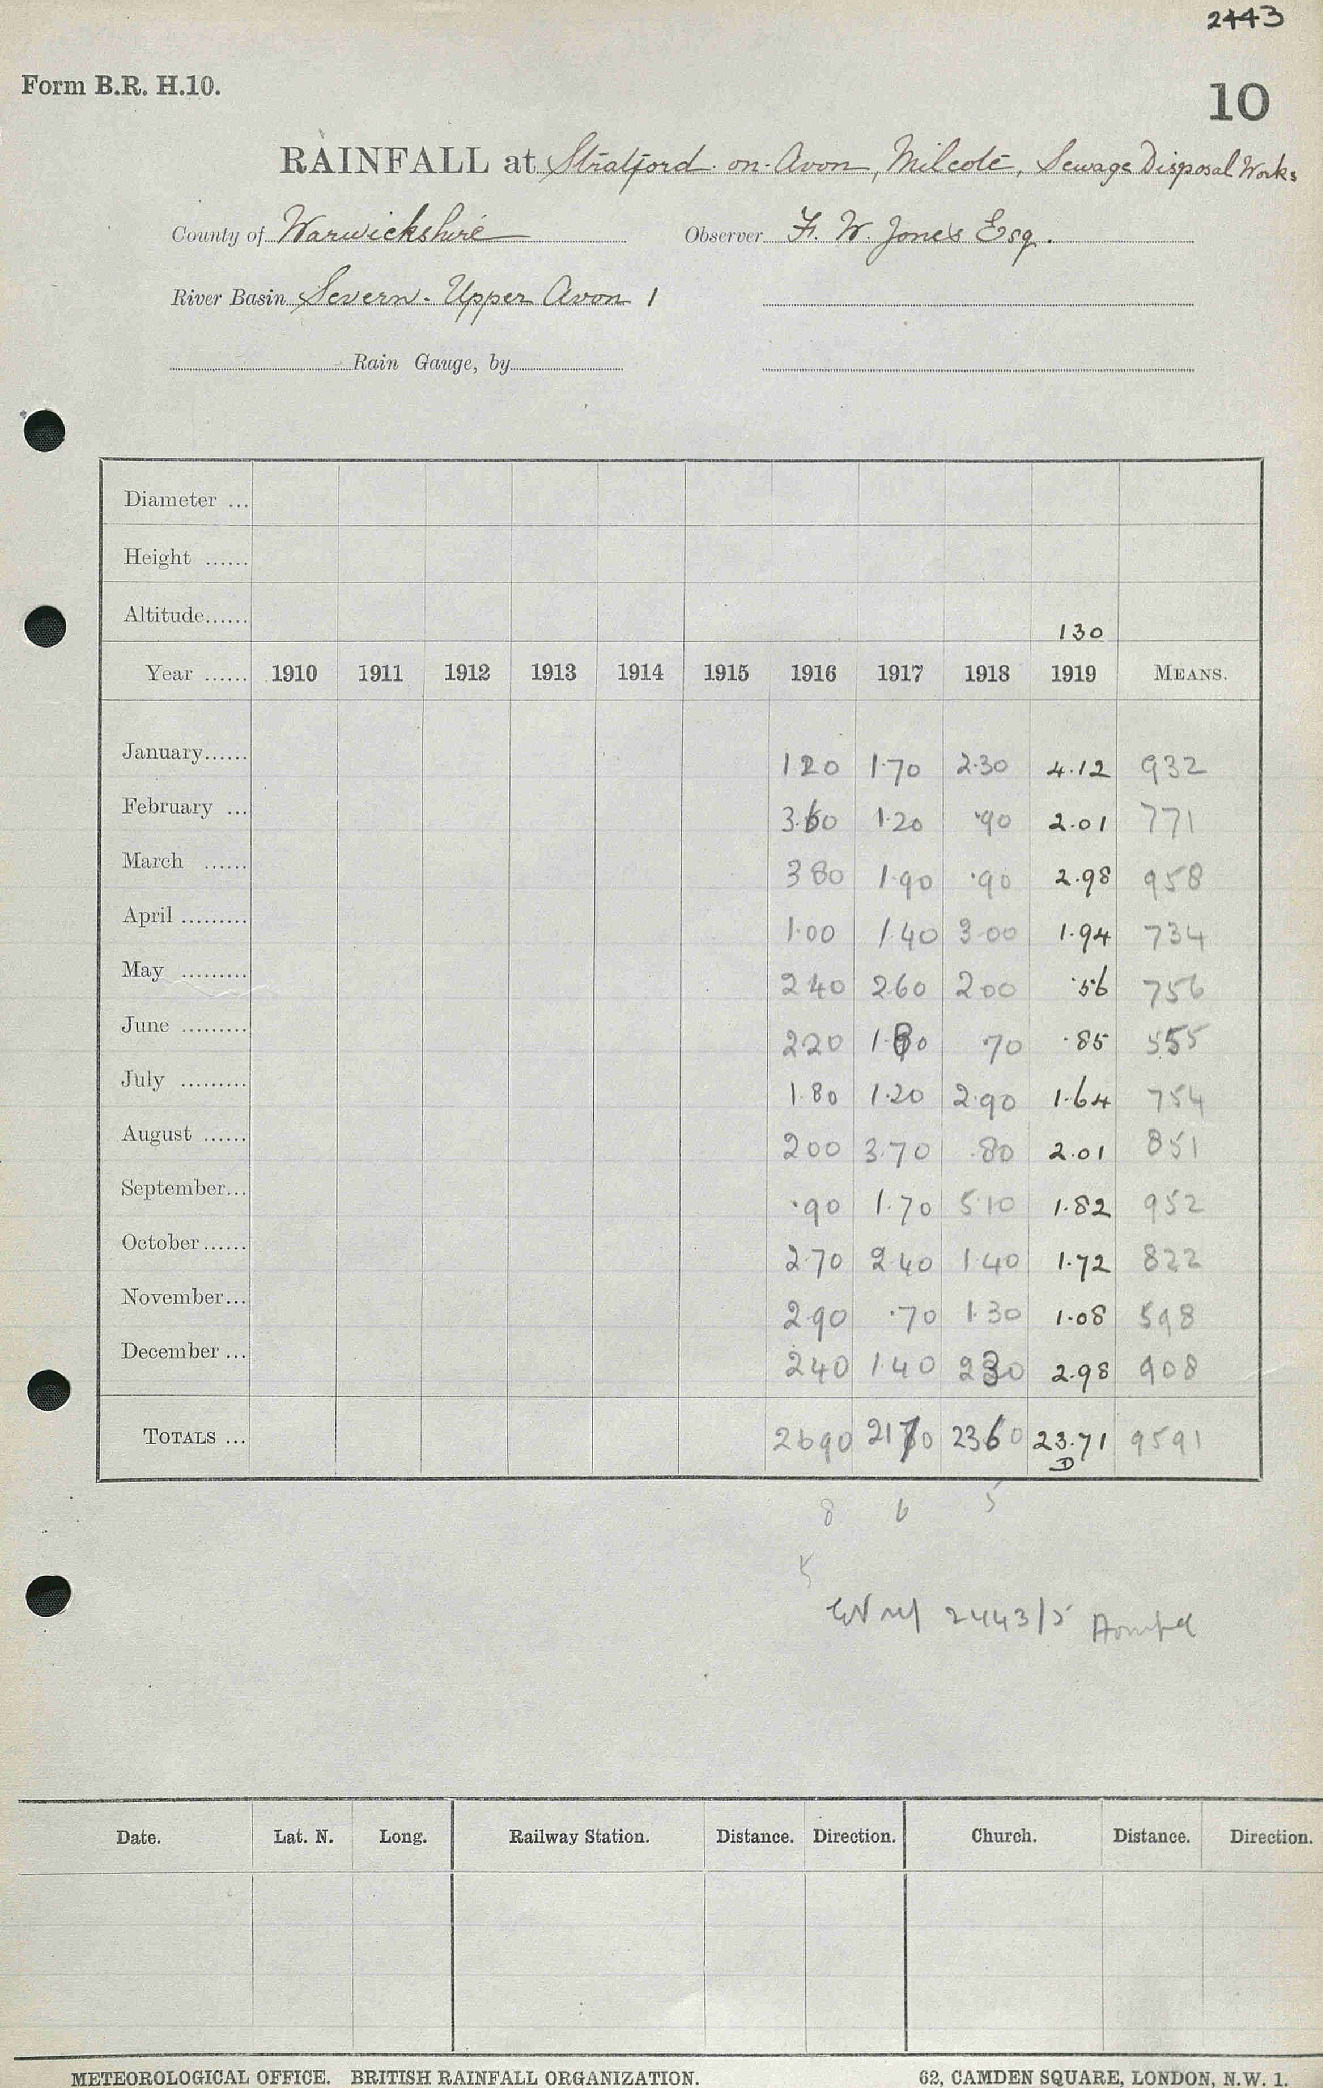 2443
Form B.R. H.10.
10
RAINFALL at Stratford-on-Avon, Milcote, Sewage Disposal Works
County of Warwickshire Observer F. W. Jones Esq.
River Basin Severn - Upper Avon 1
Rain Gauge, by
Diameter ...
Height ......
Altitude...... 130
Year ...... 1910 1911 1912 1913 1914 1915 1916 1917 1918 1919 MEANS.
January...... 120 1.70 2.30 4.12 932
February ... 3.60 1.20 .90 2.01 771
March ...... 380 1.90 .90 2.98 958
April ......... 1.00 1.40 3.00 1.94 734
May ......... 240 260 200 .56 756
June ......... 220 1.80 .70 .85 555
July ......... 1.80 1.20 2.90 1.64 754
August ...... 200 3.70 .80 2.01 851
September... .90 1.70 510 1.82 952
October...... 2.70 2.40 1.40 1.72 822
November... 2.90 .70 1.30 1.08 598
December ... 240 1.40 230 2.98 908
TOTALS ... 2690 2170 2360 23.71 9591
D
8 6 5
5
2443/5
Date. Lat. N. Long. Railway Station. Distance. Direction. Church. Distance. Direction.
METEOROLOGICAL OFFICE. BRITISH RAINFALL ORGANIZATION. 62, CAMDEN SQUARE, LONDON, N.W. 1.